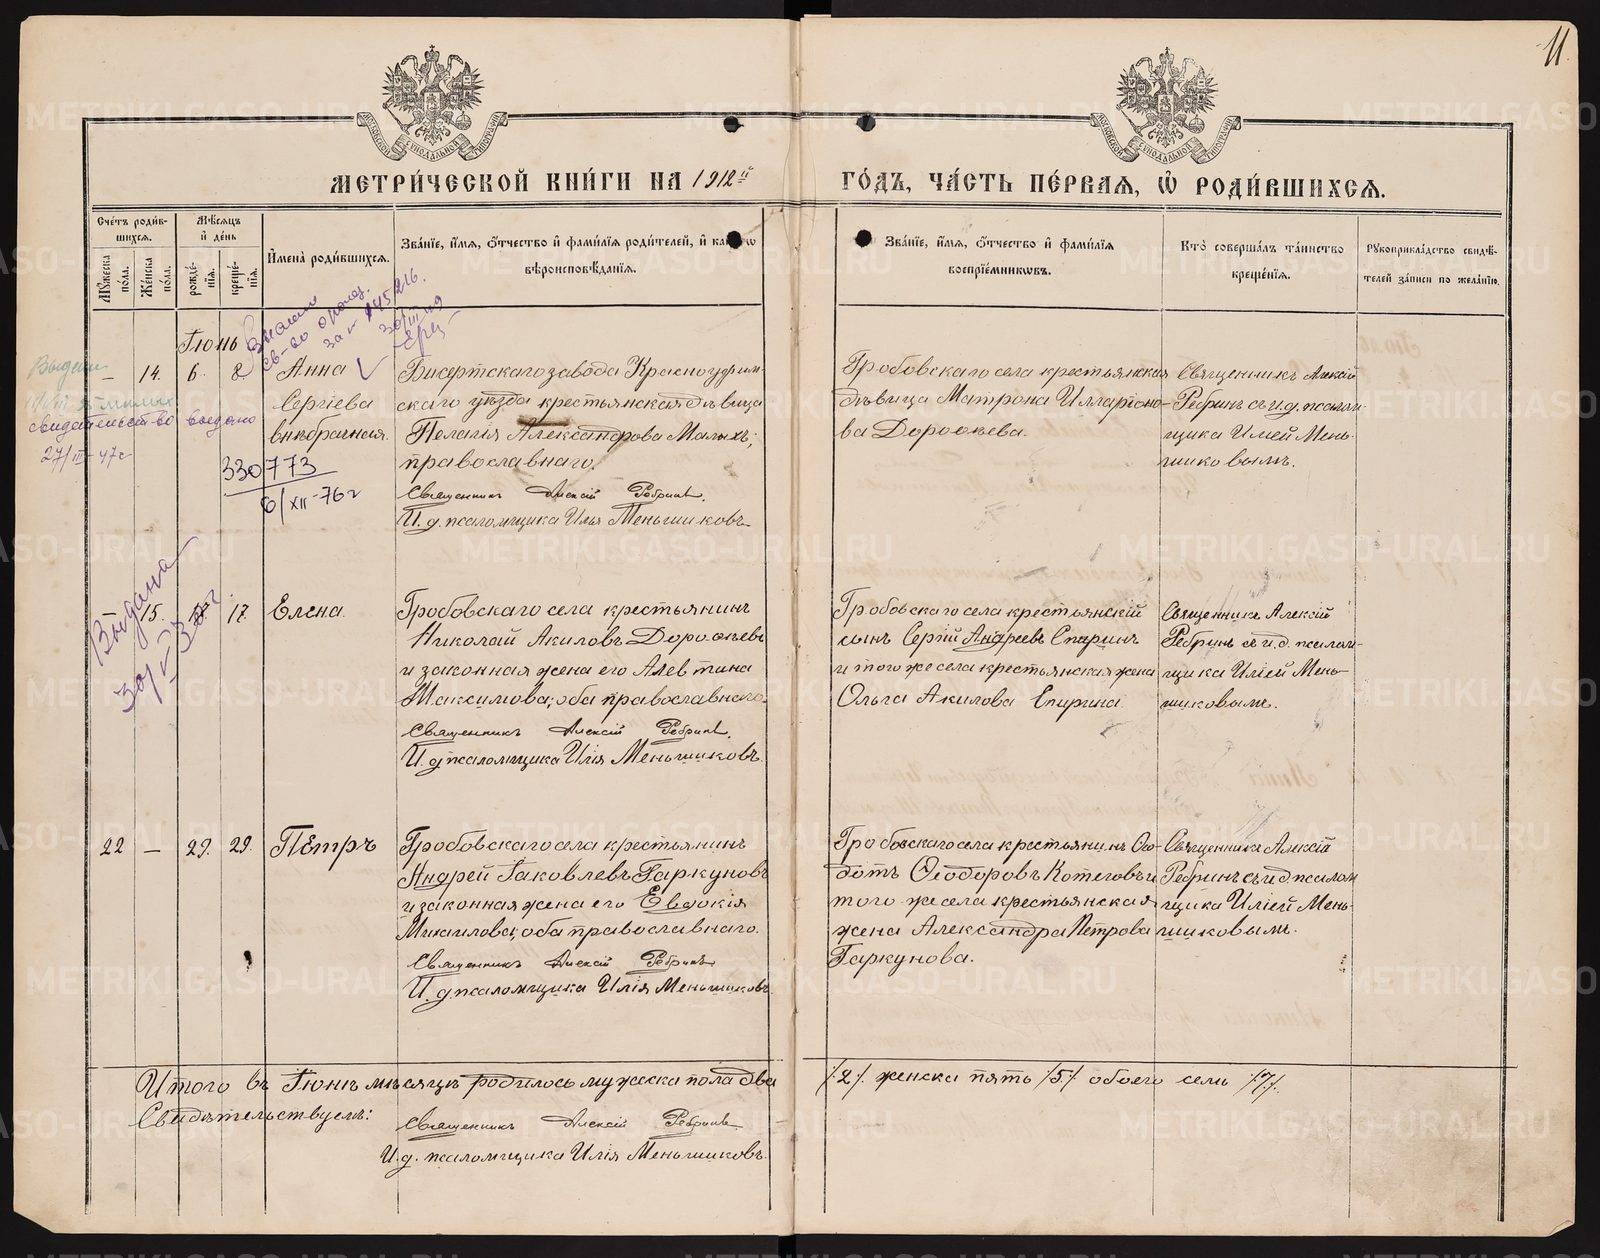 11.
МЕТРИ́ЧЕСКОЙ КНИ́ГИ НА 1912й ГО́ДЪ, ЧА́СТЬ ПЕ́РВАЯ, Ѽ РОДИ́ВШИХСЯ.
Сче́тъ роди́вшихся.
Мꙋ́жеска по́ла.
Же́нска по́ла.
Мѣ́сяцъ и҆ де́нь
рожде́нїя.
креще́нїя.
И҆мена̀ роди́вшихся.
Зва́нїе, и҆́мя, ѻ҆́тчество и҆ фами́лїя роди́телей, и҆
вѣроисповѣ́данїя.
Зва́нїе, и҆́мя, ѻ҆́тчество и҆ фами́лїя
воспрїе́мникѡвъ.
Кто̀ соверша́лъ та́инство
креще́нїя.
Рꙋкоприкла́дство свидѣ́телей за́писи по жела́нїю.
за № 145216.
Іюнь
– 14. 6. 8.
Анна
Сергіева
внѣбрачная.
свидетельство выдано
27/III-47г
330773
6/XII-76г
Бисертскаго завода Красноуфим-
скаго уѣзда крестьянская дѣвица
Пелагія Александрова Малыхъ;
православнаго.
Священникъ Алексій Ребринъ.
И. д. псаломщика Илія Меньшиковъ
Гробовскаго села крестьянская
дѣвица Матрона Илларіоно-
ва Дороѳеева.
Священникъ Алексій
Ребринъ съ и. д. псалом-
щика Иліей Мень-
шиковымъ.
Выдана
– 15. 17. Елена.
Гробовскаго села крестьянинъ
Николай Акиловъ Дороѳеевъ
и законная жена его Алевтина
Максимова; оба православнаго.
Священникъ Алексій Ребринъ.
И. д. псаломщика Илія Меньшиковъ.
Гробовскаго села крестьянскій
сынъ Сергій Андреевъ Спиринъ
и того же села крестьянская жена
Ольга Акилова Спирина.
Священникъ Алексій
Ребринъ съ и. д. псалом-
щика Иліей Мень-
шиковымъ.
22 – 29. 29. Пётръ
Гробовскаго села крестьянинъ
Андрей Іаковлевъ Гаркуновъ
и законная жена его Евдокія
Михаилова; оба православнаго.
Священникъ Алексій Ребринъ
И. д. псаломщика Илія Меньшиковъ
Гробовскаго села крестьянинъ Ѳео-
дотъ Ѳеодоровъ Котеговъ и
того же села крестьянская
жена Александра Петрова
Гаркунова.
Священникъ Алексій
Ребринъ съ и. д. псалом
щика Иліей Мень-
шиковымъ.
Итого въ Іюнѣ мѣсяцѣ родилось мужеска пола два /2/. женска пять /5/ обоего семь /7/.
Свидѣтельствуемъ:
Священникъ Алексій Ребринъ.
И. д. псаломщика Илія Меньшиковъ.
METRIKI.GASO-URAL.RU